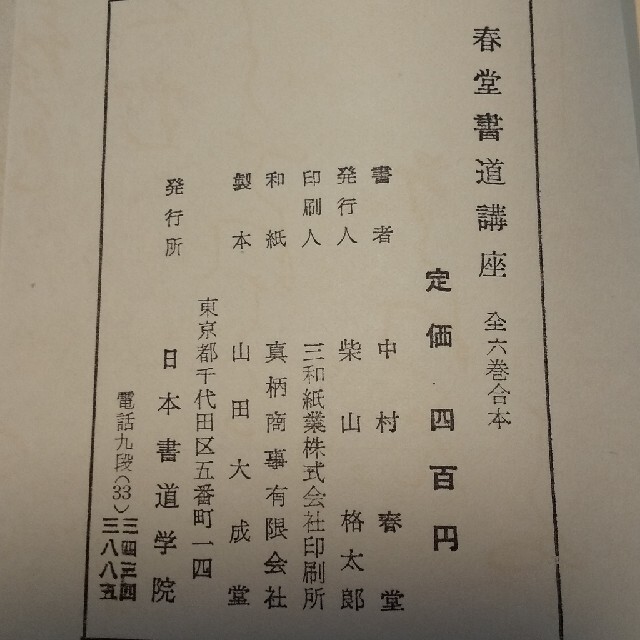 春堂書道講座 全六巻合本
定価 四百円
書者 中村春堂
発行人 柴山格太郎
印刷人 三和紙業株式会社印刷所
和紙 真柄商事有限会社
製本 山田大成堂
東京都千代田区五番町一四
発行所 日本書道学院
電話九段(33)三四三四
三八八五